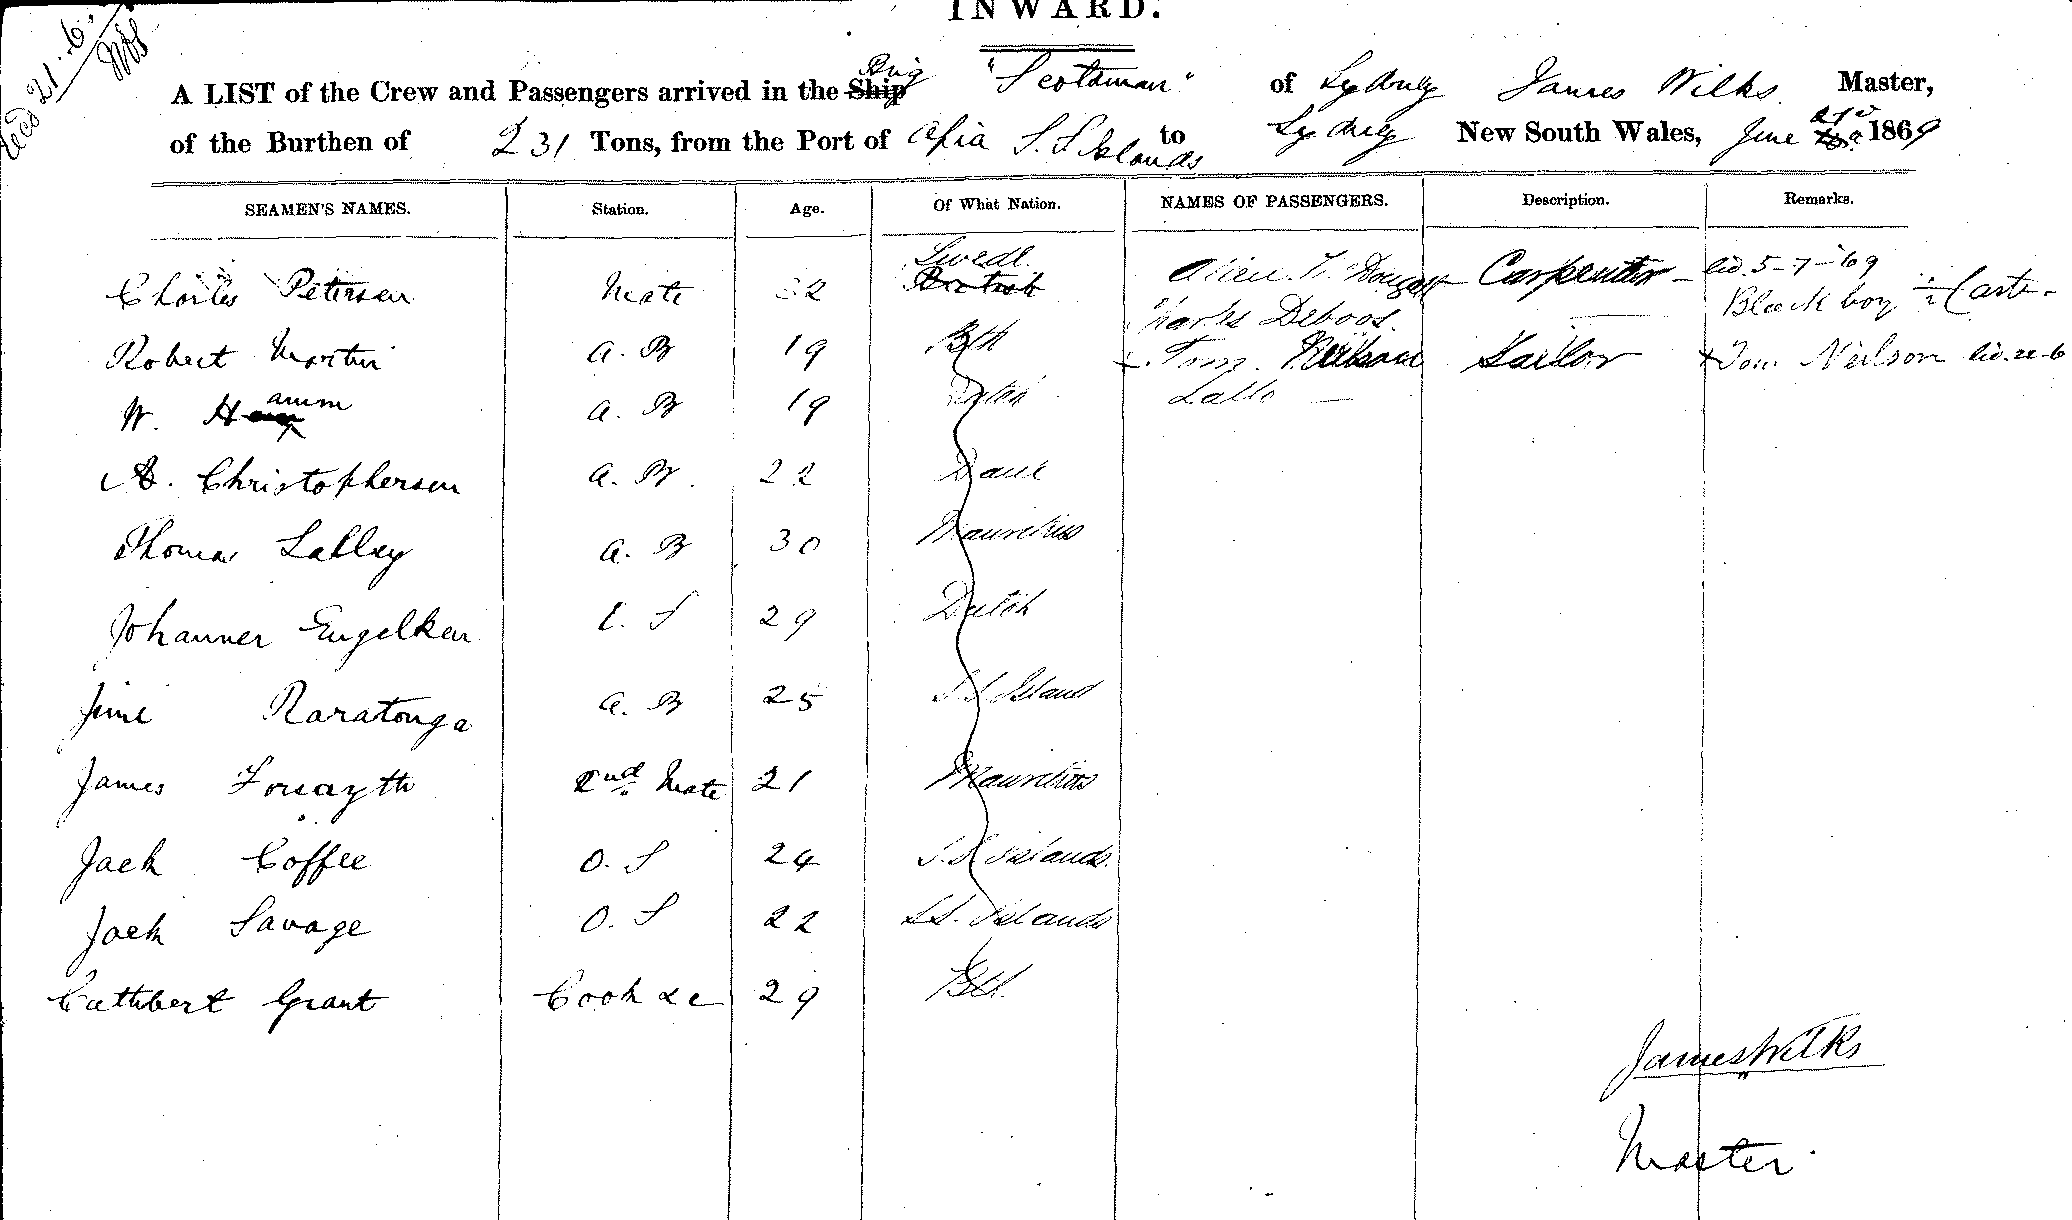 INWARD.
21.6.
A LIST of the Crew and Passengers arrived in the Ship Brig "Scotsman" of Sydney James Wilks Master,
of the Burthen of 231 Tons, from the Port of Apia S. S Islands to Sydney New South Wales, June 1869
SEAMEN'S NAMES. Station. Age. Of What Nation. NAMES OF PASSENGERS. Description. Remarks.
Charles Petersen Mate 32 Swede British Carpenter 5-7-69
Charles Deboos. Black boy ½ Caste
Robert Martin A. B 19 Bth Tom Neilson Sailor x Tom Neilson
W. Hamm A. B 19 Lallo
A. Christophersen A. B. 22 Dane
Thomas Lalley A. B 30 Mauritius
Johannes Engelken S 29 Dutch
Jime Raratonga A. B 25 S. S Island
James Forsayth 2nd Mate 21 Mauritius
Jack Coffee O. S 24 S. S Islands.
Jack Savage O. S 22 S S. Islands
Cuthbert Grant Cook &c 29 Bth.
James Wilks
Master.